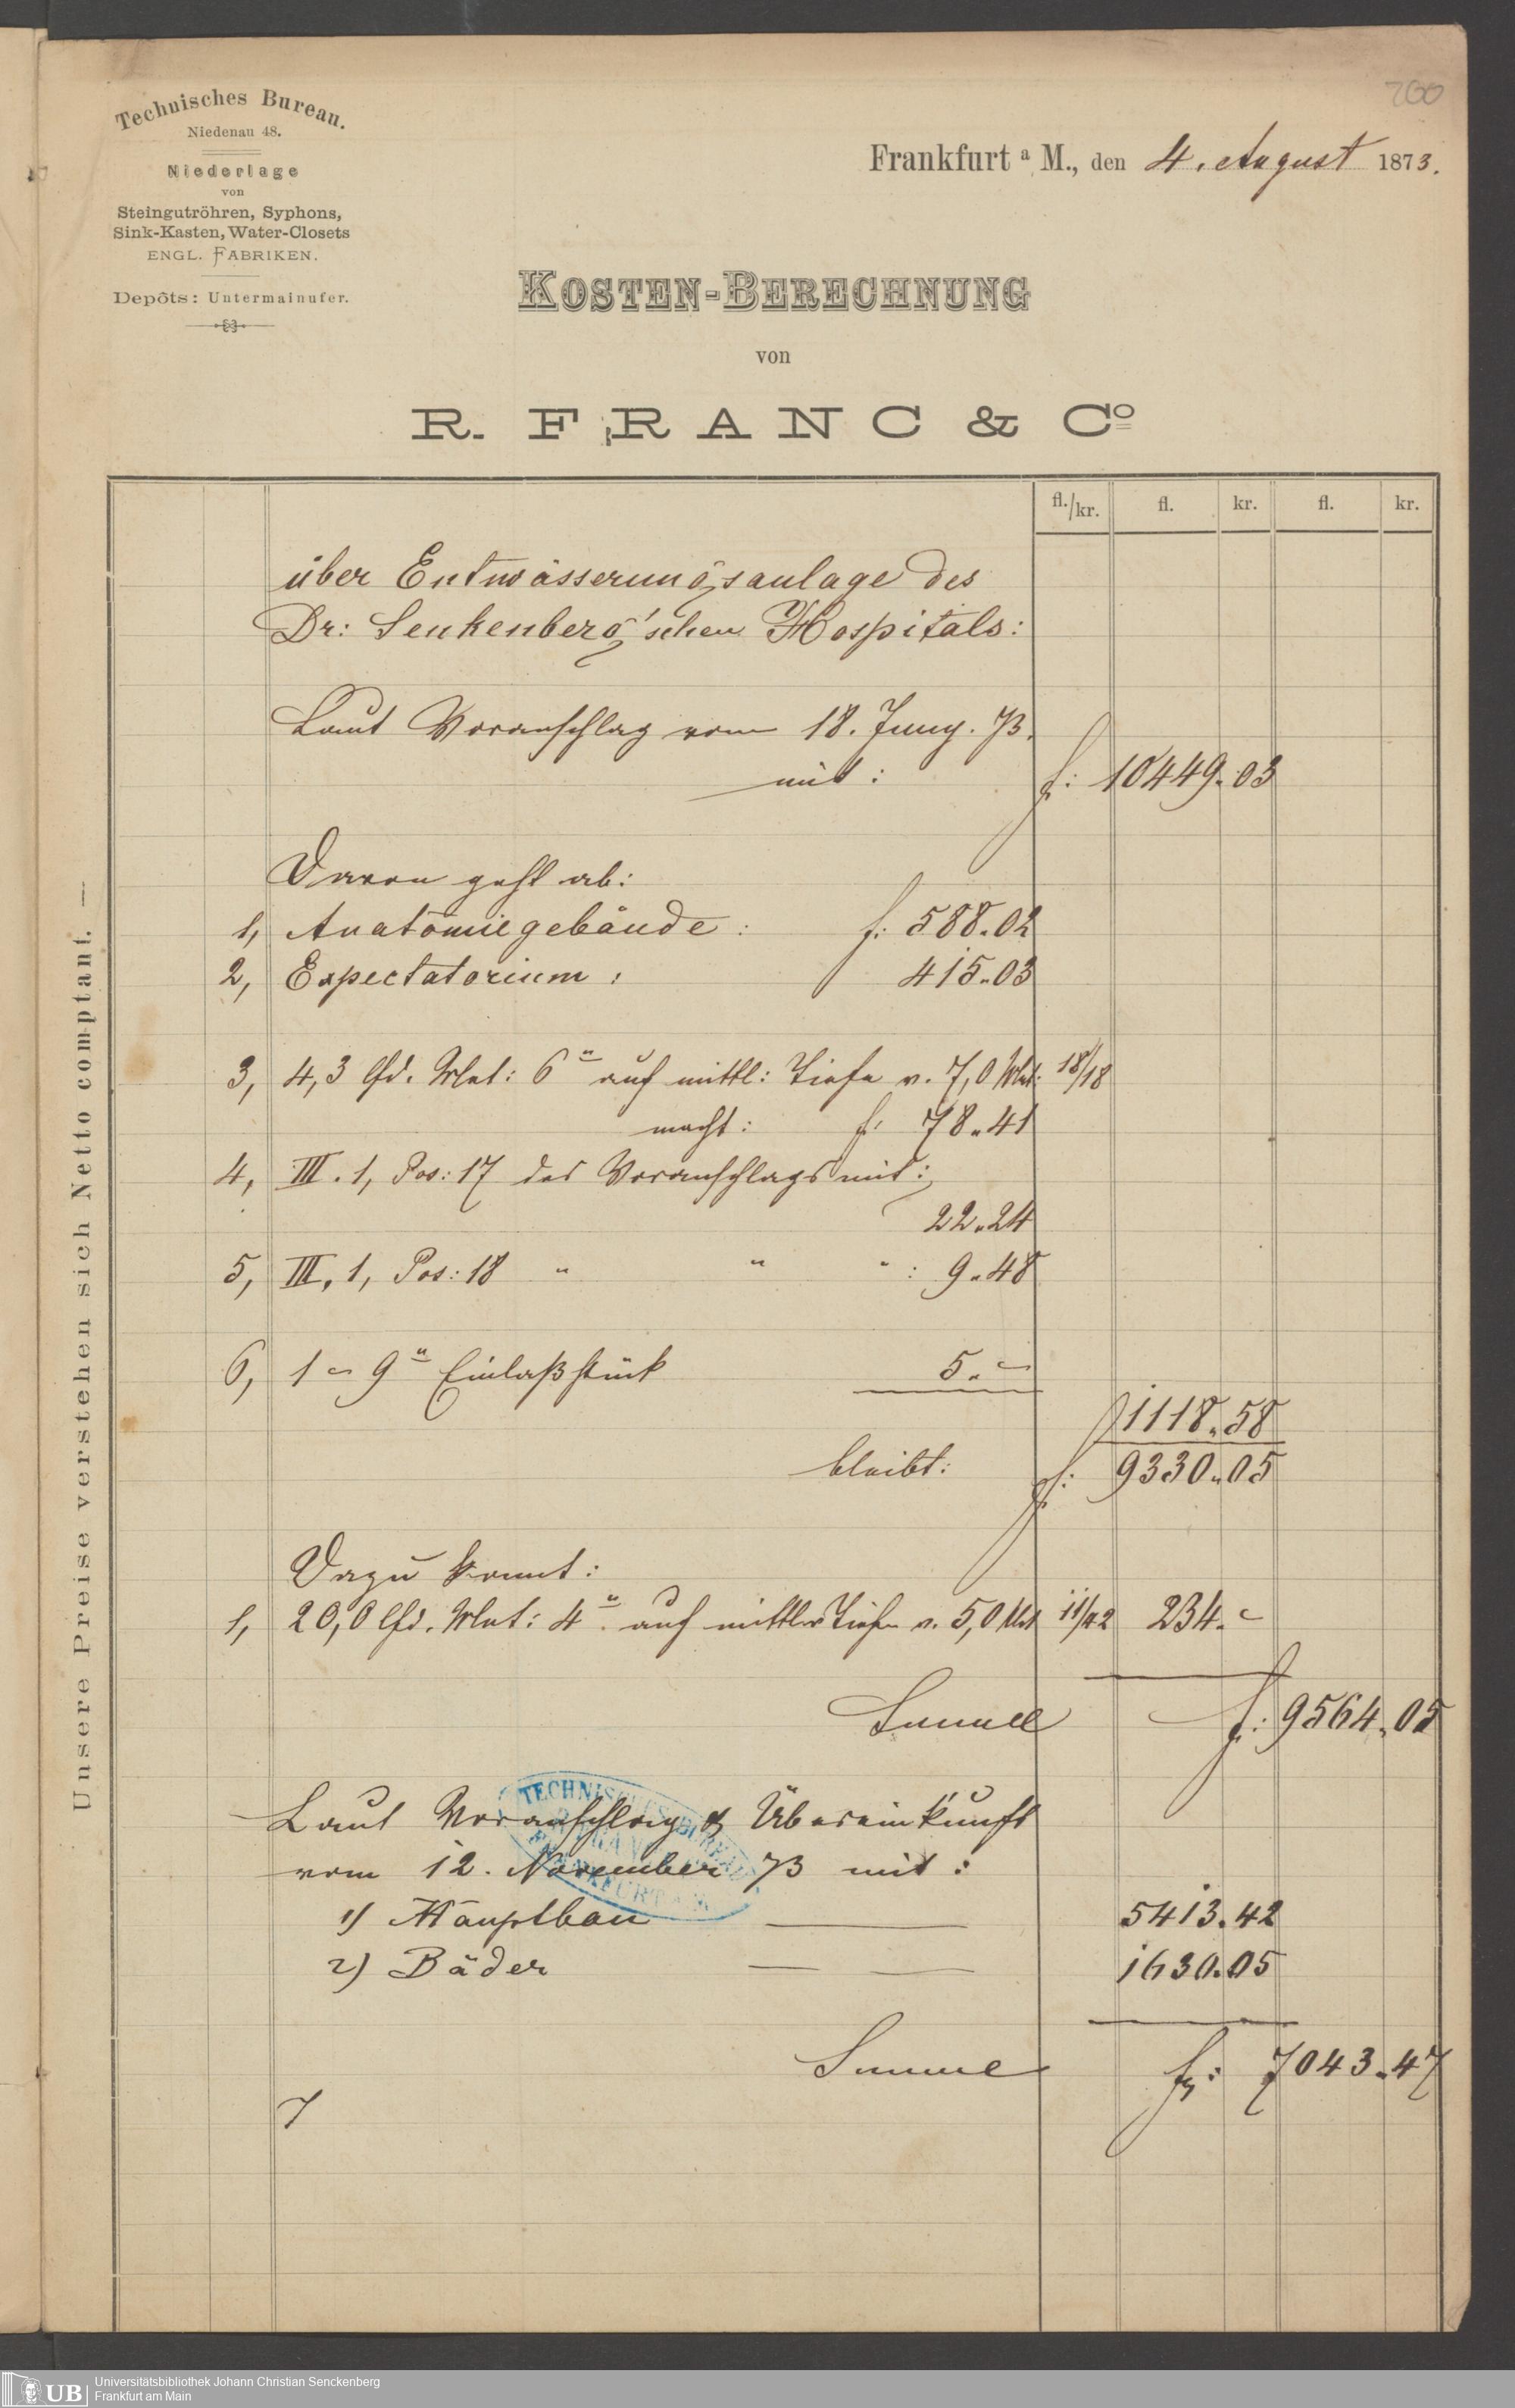 200
Technisches Bureau.
Niedenau 48.
Niederlage
von
Steingutröhren, Syphons,
Sink-Kasten, Water-Closets
ENGL. FABRIKEN.
Depôts: Untermainufer.
Frankfurt a M., den 4. August 1873.
KOSTEN-BERECHNUNG
von
R. FRANC & Co
fl./kr. fl. kr. fl. kr.
über Entwässerungsanlage des
Dr: Senkenberg'schen Hospitals:
Laut Voranschlag vom 18. Juny. 73.
mit: f: 10449.03
Davon geht ab:
1, Anatomiegebäude: f: 588.02
2, Expectatorium: 415.03
3, 4,3 lfd. Met: 6" auf mittl: Tiefe v. 7,0 Met: 18/18
macht: f: 78.41
4, III. 1, Pos: 17 des Voranschlags mit:
22.24
5, III, 1, Pos: 18 " " ": 9.48
6, 1 - 9" Einlaßstück 5.-
1118.58
bleibt: f: 9330.05
Dazu kommt:
1, 20,0 lfd. Met: 4" auf mittler Tiefe v. 5,0 Met 11/42 234.-
Summe f: 9564.05
Laut Voranschlag & Übereinkunft
vom 12. November 73 mit:
1) Hauptbau 5413.42
2) Bäder 1630.05
Summe f: 7043.47
Unsere Preise verstehen sich Netto comptant. —
TECHNISCHES BUREAU
FRANKFURT A M
UB Universitätsbibliothek Johann Christian Senckenberg
Frankfurt am Main